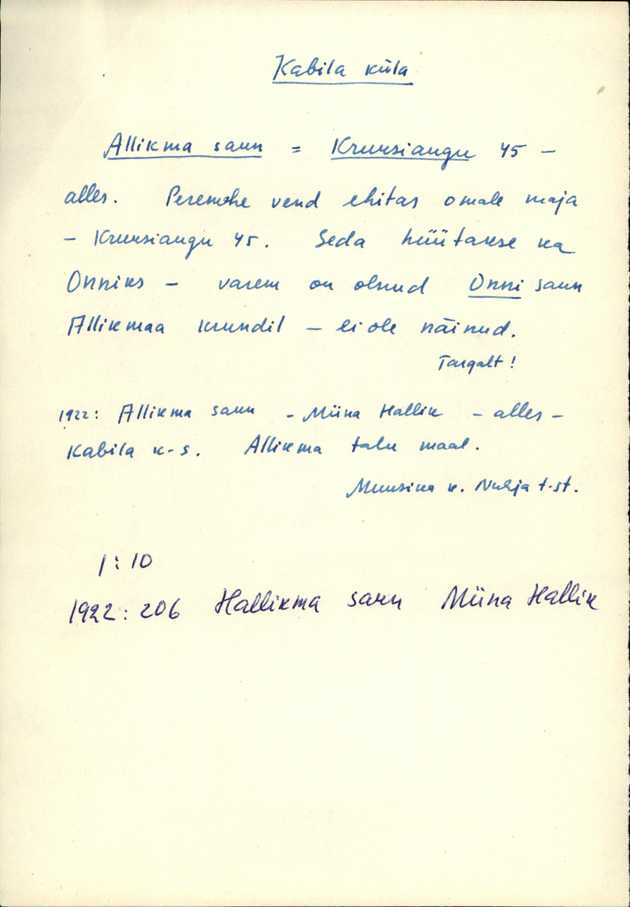 Kabila küla
Allikma saun = Kruusiaugu 45 –
alles. Peremehe vend ehitas omale maja
– Kruusiaugu 45. Seda hüütakse ka
Onniks – varem on olnud Onni saun
Allikmaa krundil – ei ole näinud.
Targalt!
1922: Allikma saun – Miina Hallik – alles –
Kabila k-s. Allikma talu maal.
Muusika k. Nuhja t-st.
1:10
1922: 206 Hallikma saun Miina Hallik